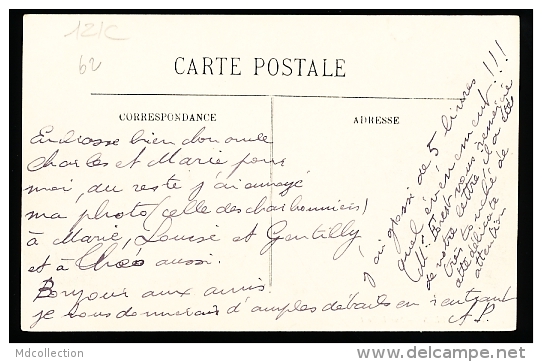 121C
62
CARTE POSTALE
CORRESPONDANCE
ADRESSE
Embrasse bien mon oncle
Charles et Marie pour
moi, du reste j'ai envoyé
ma photo (celle des charbonniers)
à Marie, Louise et Gentilly
et à aussi.
Bonjour aux amis
je vous donnerai d'amples détails en rentrant
A.P.
J'ai grossi de 5 livres
quel événement!!!
Mr Bret vous remercie
de votre lettre, il a été
très touché de
cette délicate
attention
Mdcollection
http://www.delcampe.net